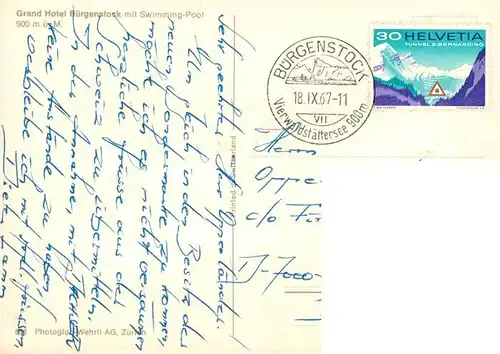 Grand Hotel Bürgenstock mit Swimming-Pool
900 m ü. M.
Sehr geehrter Herr Oppenländer,
Um gleich in den Besitz des
neuen Sondermarke zu kommen,
möchte ich es nicht versäumen
herzliche Grüsse aus der
Schweiz zu übermitteln.
In der Annahme mit
Ihr Auslande zu haben
verbleibe ich mit
BÜRGENSTOCK
18.IX.67-11
VII
Vierwaldstättersee 900m
30 HELVETIA
TUNNEL S. BERNARDINO
Herrn
Oppe
c/o Fir
D-7000
Printed in Switzerland
Photoglob-Wehrli AG, Zürich